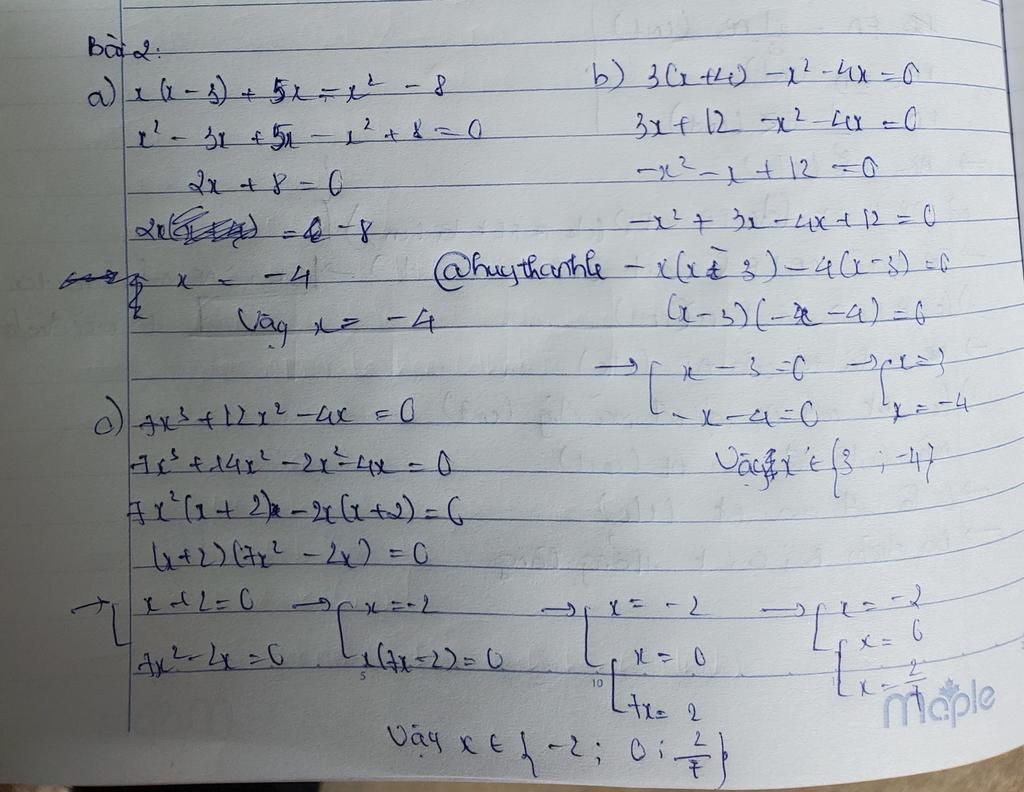 Bài 2:
a) x(x - 3) + 5x = x² - 8
x² - 3x + 5x - x² + 8 = 0
2x + 8 = 0
2x = -8
x = -4
Vậy x = -4
b) 3(x+4) - x² - 4x = 0
3x + 12 - x² - 4x = 0
-x² - x + 12 = 0
-x² + 3x - 4x + 12 = 0
@huythanhle - x(x - 3) - 4(x - 3) = 0
(x - 3)(-x - 4) = 0
→ [ x - 3 = 0 → [ x = 3
- x - 4 = 0 x = -4
Vậy x ∈ {3 ; -4}
c) 7x³ + 12x² - 4x = 0
7x³ + 14x² - 2x² - 4x = 0
7x²(x + 2) - 2x(x + 2) = 0
(x + 2)(7x² - 2x) = 0
→ [ x + 2 = 0 → [ x = -2 → [ x = -2 → [ x = -2
7x² - 2x = 0 x(7x - 2) = 0 [ x = 0 [ x = 0
7x = 2 x = 2/7
5 10
maple
Vậy x ∈ { -2 ; 0 ; 2/7 }